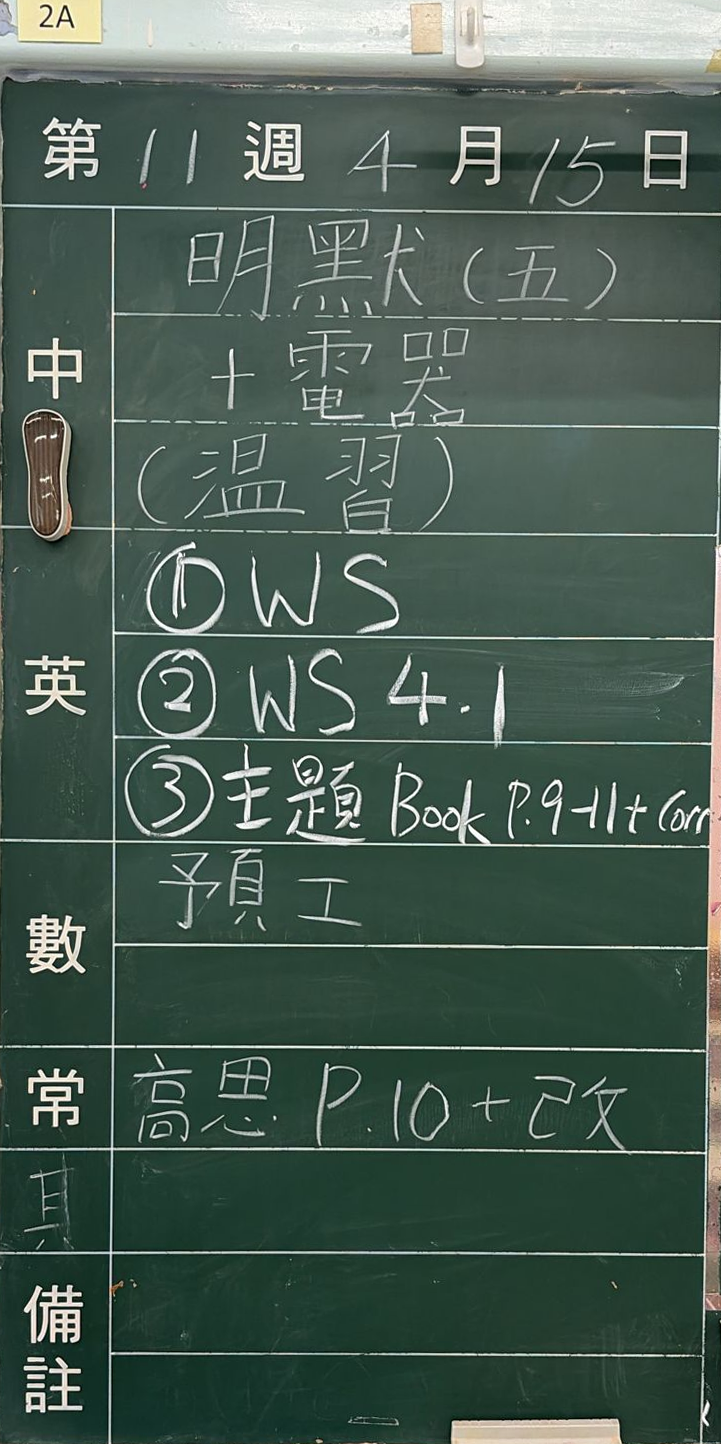 2A
第 11 週 4 月 15 日
中
明默(五)
+ 電器
(温習)
英
① WS
② WS 4.1
③ 主題 Book P.9-11 + Corr
數
預工
常
高思 P.10 + 改
備註